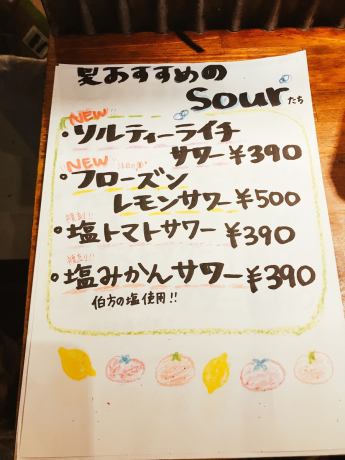 夏おすすめの
Sourたち
NEW!!
・ソルティーライチ
サワー ¥390
NEW
・フローズン
レモンサワー ¥500
・塩トマトサワー ¥390
・塩みかんサワー ¥390
伯方の塩使用!!